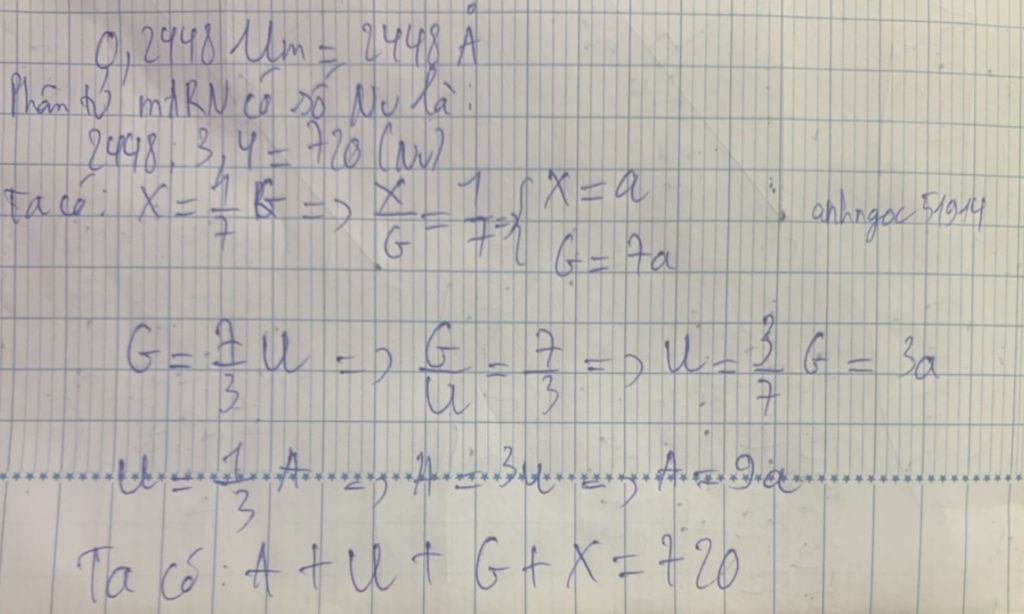 0,2448 Um = 2448 Å
Phân tử mARN có số Nu là:
2448 : 3,4 = 720 (Nu)
Ta có: X = 1/7 G => X/G = 1/7 => { X = a
G = 7a
anhngoc51914
G = 7/3 U => G/U = 7/3 => U = 3/7 G = 3a
U = 1/3 A => A = 3U => A = 9a
Ta có: A + U + G + X = 720